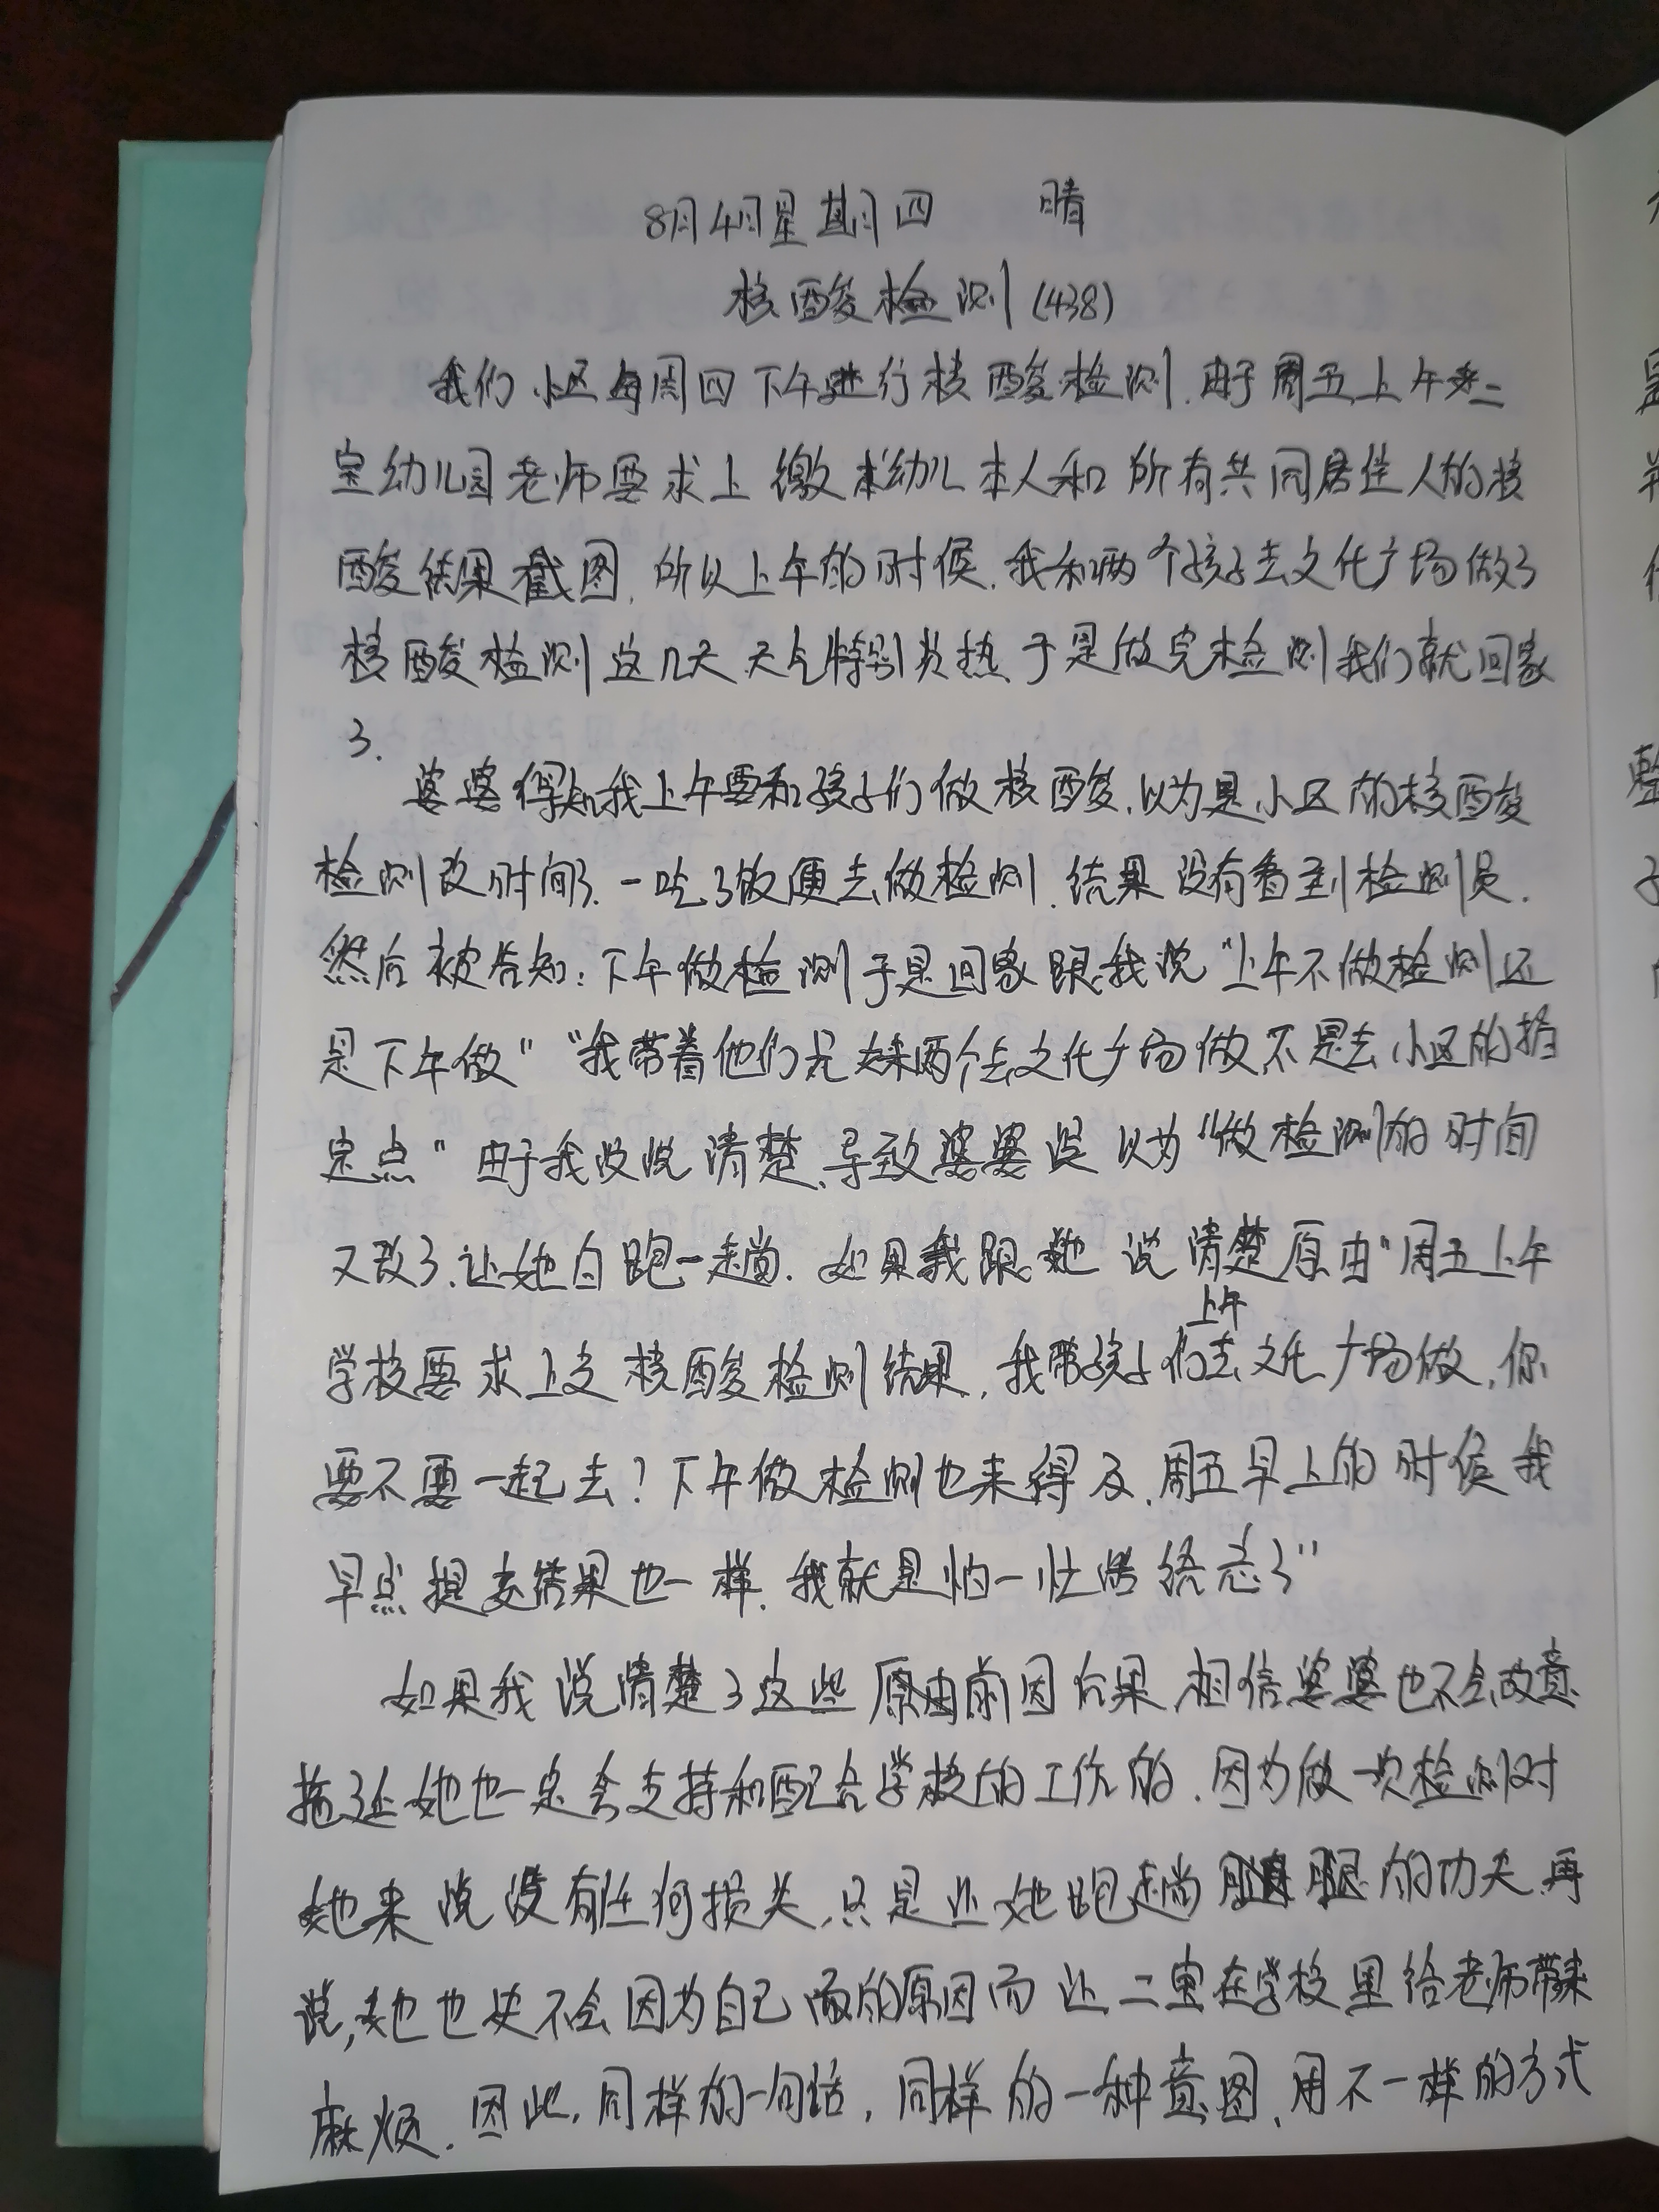 8月4日星期四 晴
核酸检测(438)
我们小区每周四下午进行核酸检测.由于周五上午二
宝幼儿园老师要求上缴幼儿本人和所有共同居住人的核
酸结果截图.所以上午的时候.我和两个孩子去文化广场做了
核酸检测这几天天气特别炎热.于是做完检测我们就回家
了.
婆婆得知我上午要和孩子们做核酸.以为是小区的核酸
检测改时间了.一吃了饭便去做检测.结果没有看到检测员.
然后被告知:下午做检测于是回家跟我说"上午不做检测还
是下午做""我带着他们兄妹两个去文化广场做不是去小区的指
定点"由于我没说清楚.导致婆婆误以为"做检测的时间
又改了.让她白跑一趟.如果我跟她说清楚原由"周五上午
上午
学校要求上交核酸检测结果,我带孩子们去文化广场做,你
要不要一起去?下午做检测也来得及.周五早上的时候我
早点提交结果也一样.我就是怕一忙给忘了"
如果我说清楚了这些原由前因后果.相信婆婆也不会故意
拖延她也一定会支持和配合学校的工作的.因为做一次检测对
她来说没有任何损失,只是让她跑趟腿的功夫.再
说,她也决不会因为自己的原因而让二宝在学校里给老师带来
麻烦.因此,同样的一句话,同样的一种意图,用不一样的方式